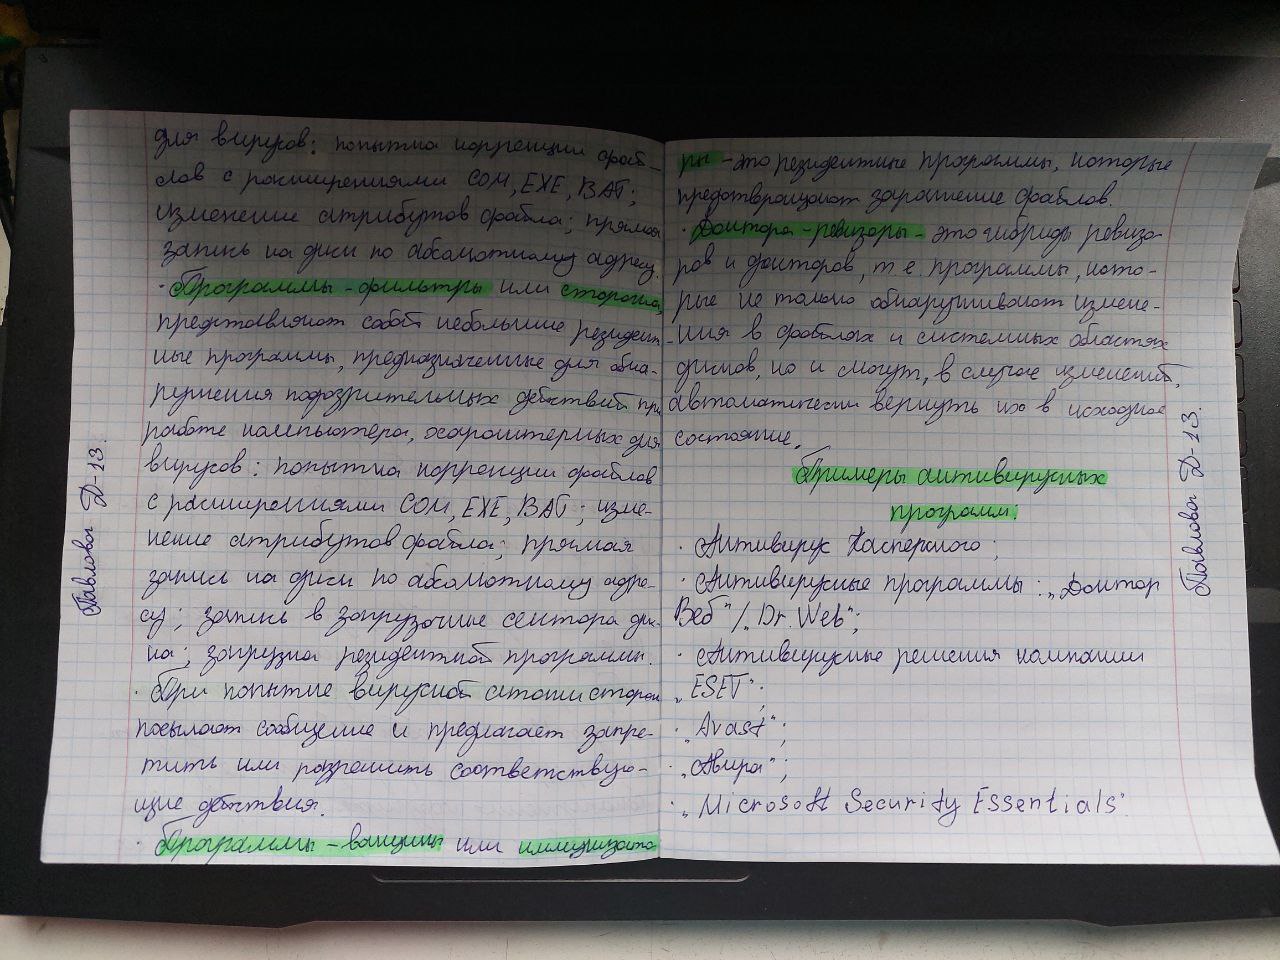 для вирусов: попытка коррекции фай-
лов с расширениями COM, EXE, BAT;
изменение атрибутов файла; прямая
запись на диск по абсолютному адресу.
· Программы-фильтры или сторожа,
представляют собой небольшие резидент
ные программы, предназначенные для обна-
ружения подозрительных действий при
работе компьютера, характерных для
вирусов: попытка коррекции файлов
с расширениями COM, EXE, BAT; изме-
нение атрибутов файла; прямая
запись на диск по абсолютному адре-
су; запись в загрузочные сектора дис-
ка; загрузка резидентной программы.
· При попытке вирусной атаки сторож
посылают сообщение и предлагает запре-
тить или разрешить соответствую-
щие действия.
· Программы-вакцины или иммунизато
Павлова Д-13.
ры - это резидентные программы, которые
предотвращают заражение файлов.
· Доктора-ревизоры - это гибриды ревизо-
ров и докторов, т.е. программы, кото-
рые не только обнаруживают измене-
-ния в файлах и системных областях
дисков, но и могут, в случае изменений,
автоматически вернуть их в исходное
состояние.
Примеры антивирусных
программ.
· Антивирус Касперского;
· Антивирусные программы: „Доктор
Веб" / „Dr. Web";
· Антивирусные решения компании
„ESET";
· „Avast";
· „Авира";
· „Microsoft Security Essentials".
Павлова Д-13.